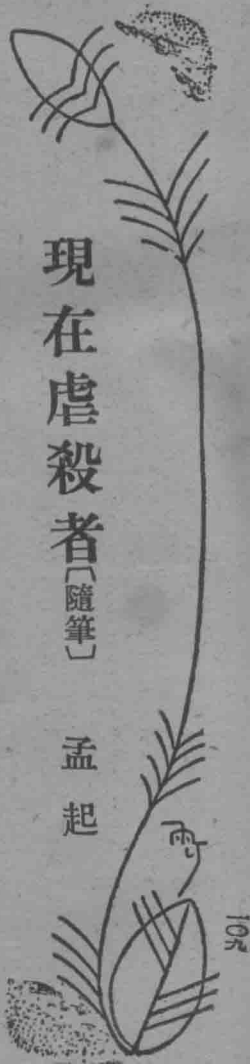 現在虐殺者〔隨筆〕 孟起